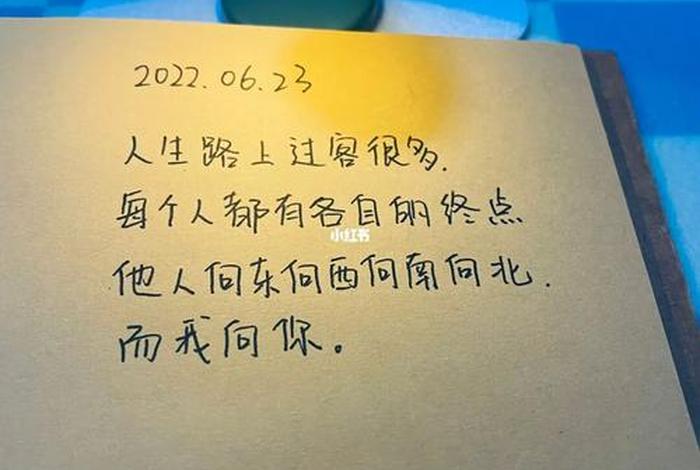 2022.06.23
人生路上过客很多.
每个人都有各自的终点
小红书
他人向东向西向南向北.
而我向你。